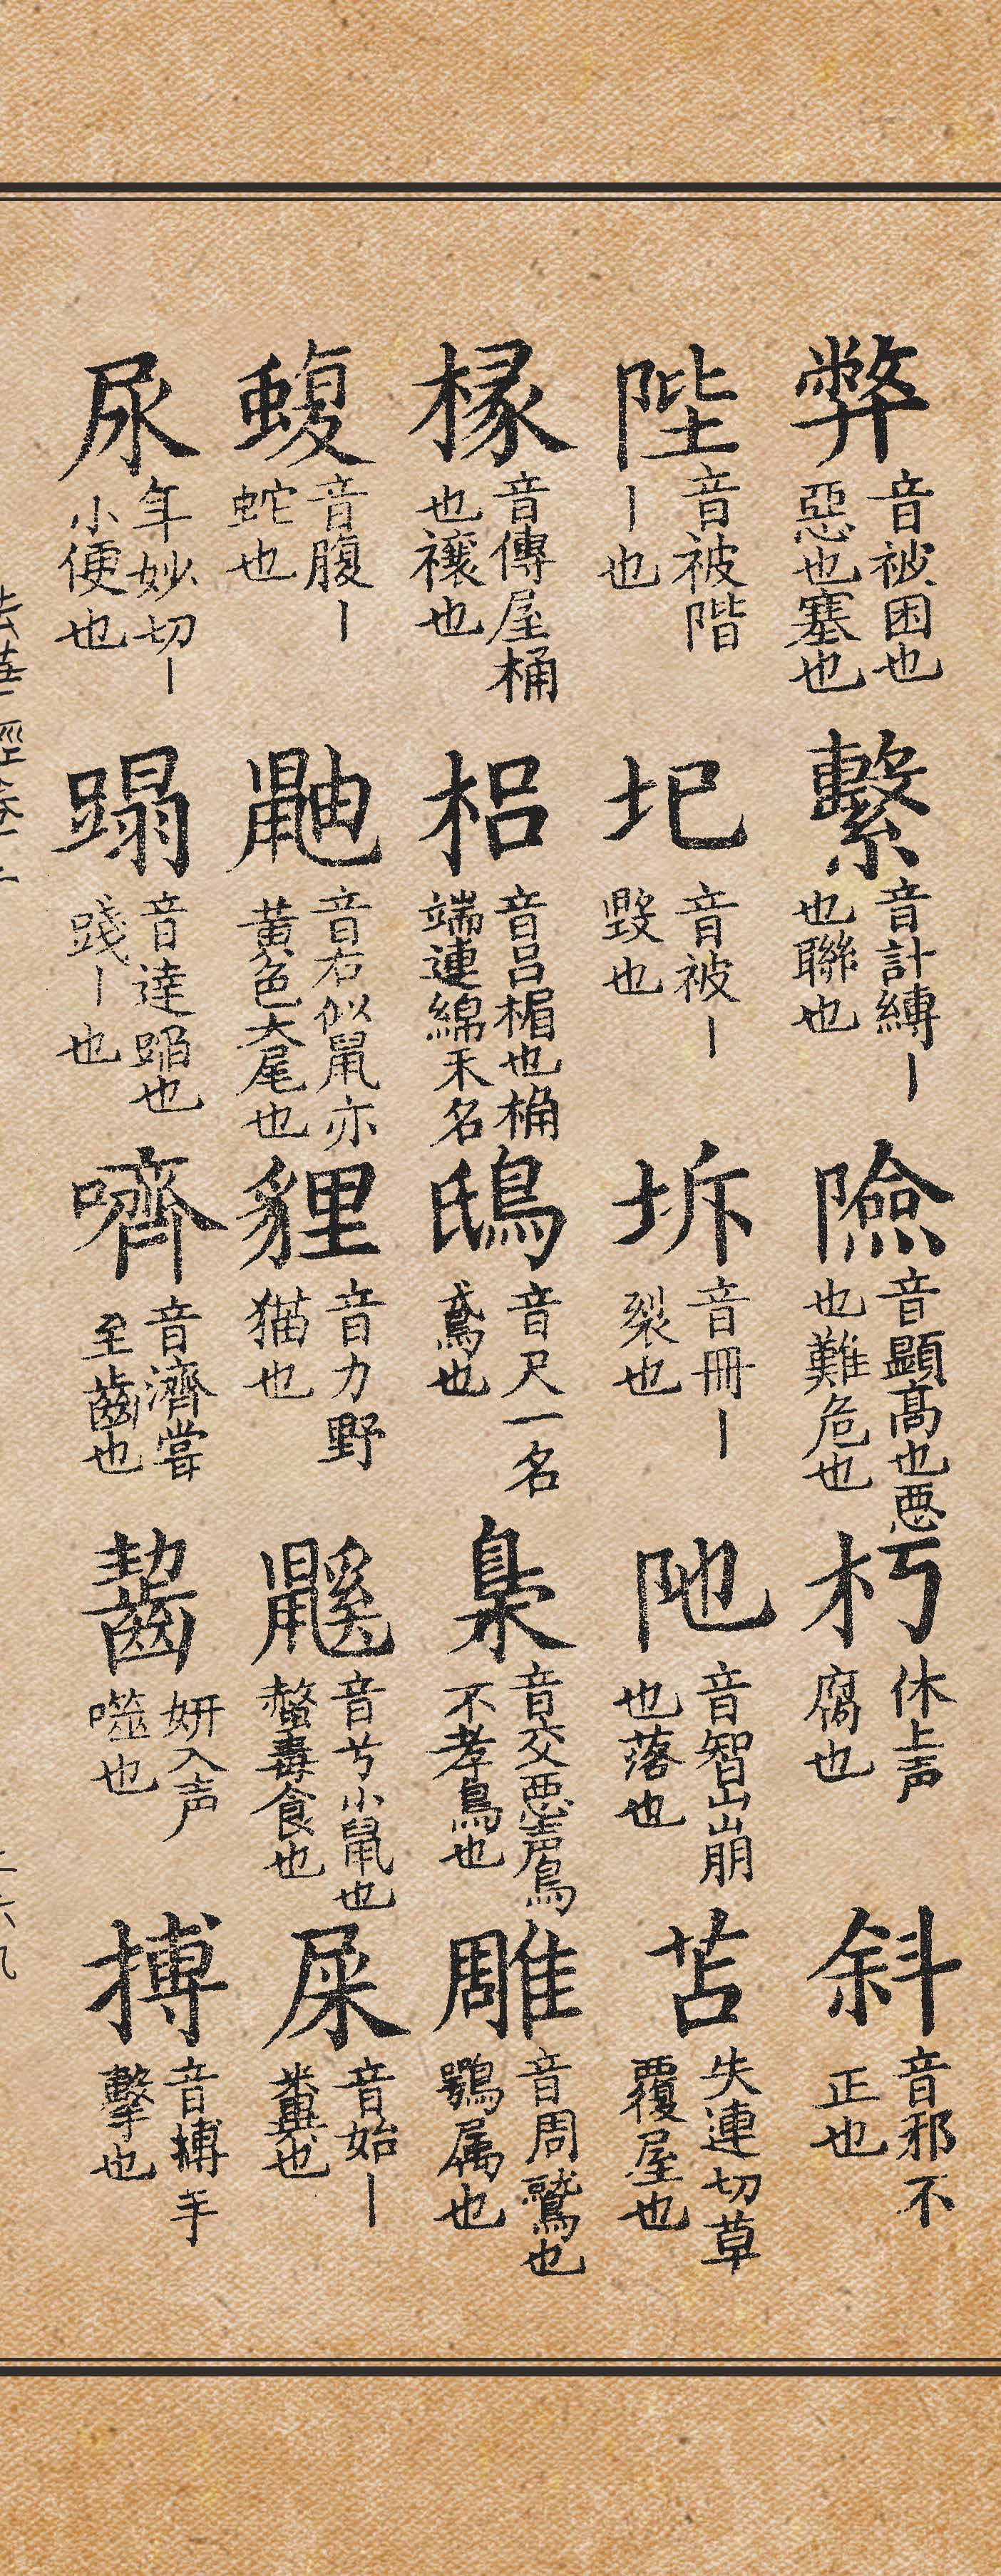 弊 音被困也惡也塞也 繫 音計縛丨也聯也 險 音顯高也惡也難危也 朽 休上声腐也 斜 音邪不正也
陛 音被階丨也 圮 音被丨毀也 坼 音冊丨裂也 阤 音智山崩也落也 苫 失連切草覆屋也
椽 音傳屋桶也禳也 梠 音吕楣也桷端連綿木名 鴟 音尺一名鳶也 梟 音交惡声鳥不孝鳥也 雕 音周鷲也鶚属也
蝮 音腹丨蛇也 鼬 音右似鼠亦黄色大尾也 貍 音力野猫也 鼷 音兮小鼠也螫毒食也 屎 音始丨糞也
尿 年妙切丨小便也 蹋 音達踏也踐丨也 嚌 音濟嘗至齒也 齧 妍入声噬也 搏 音博手擊也
法華經卷二